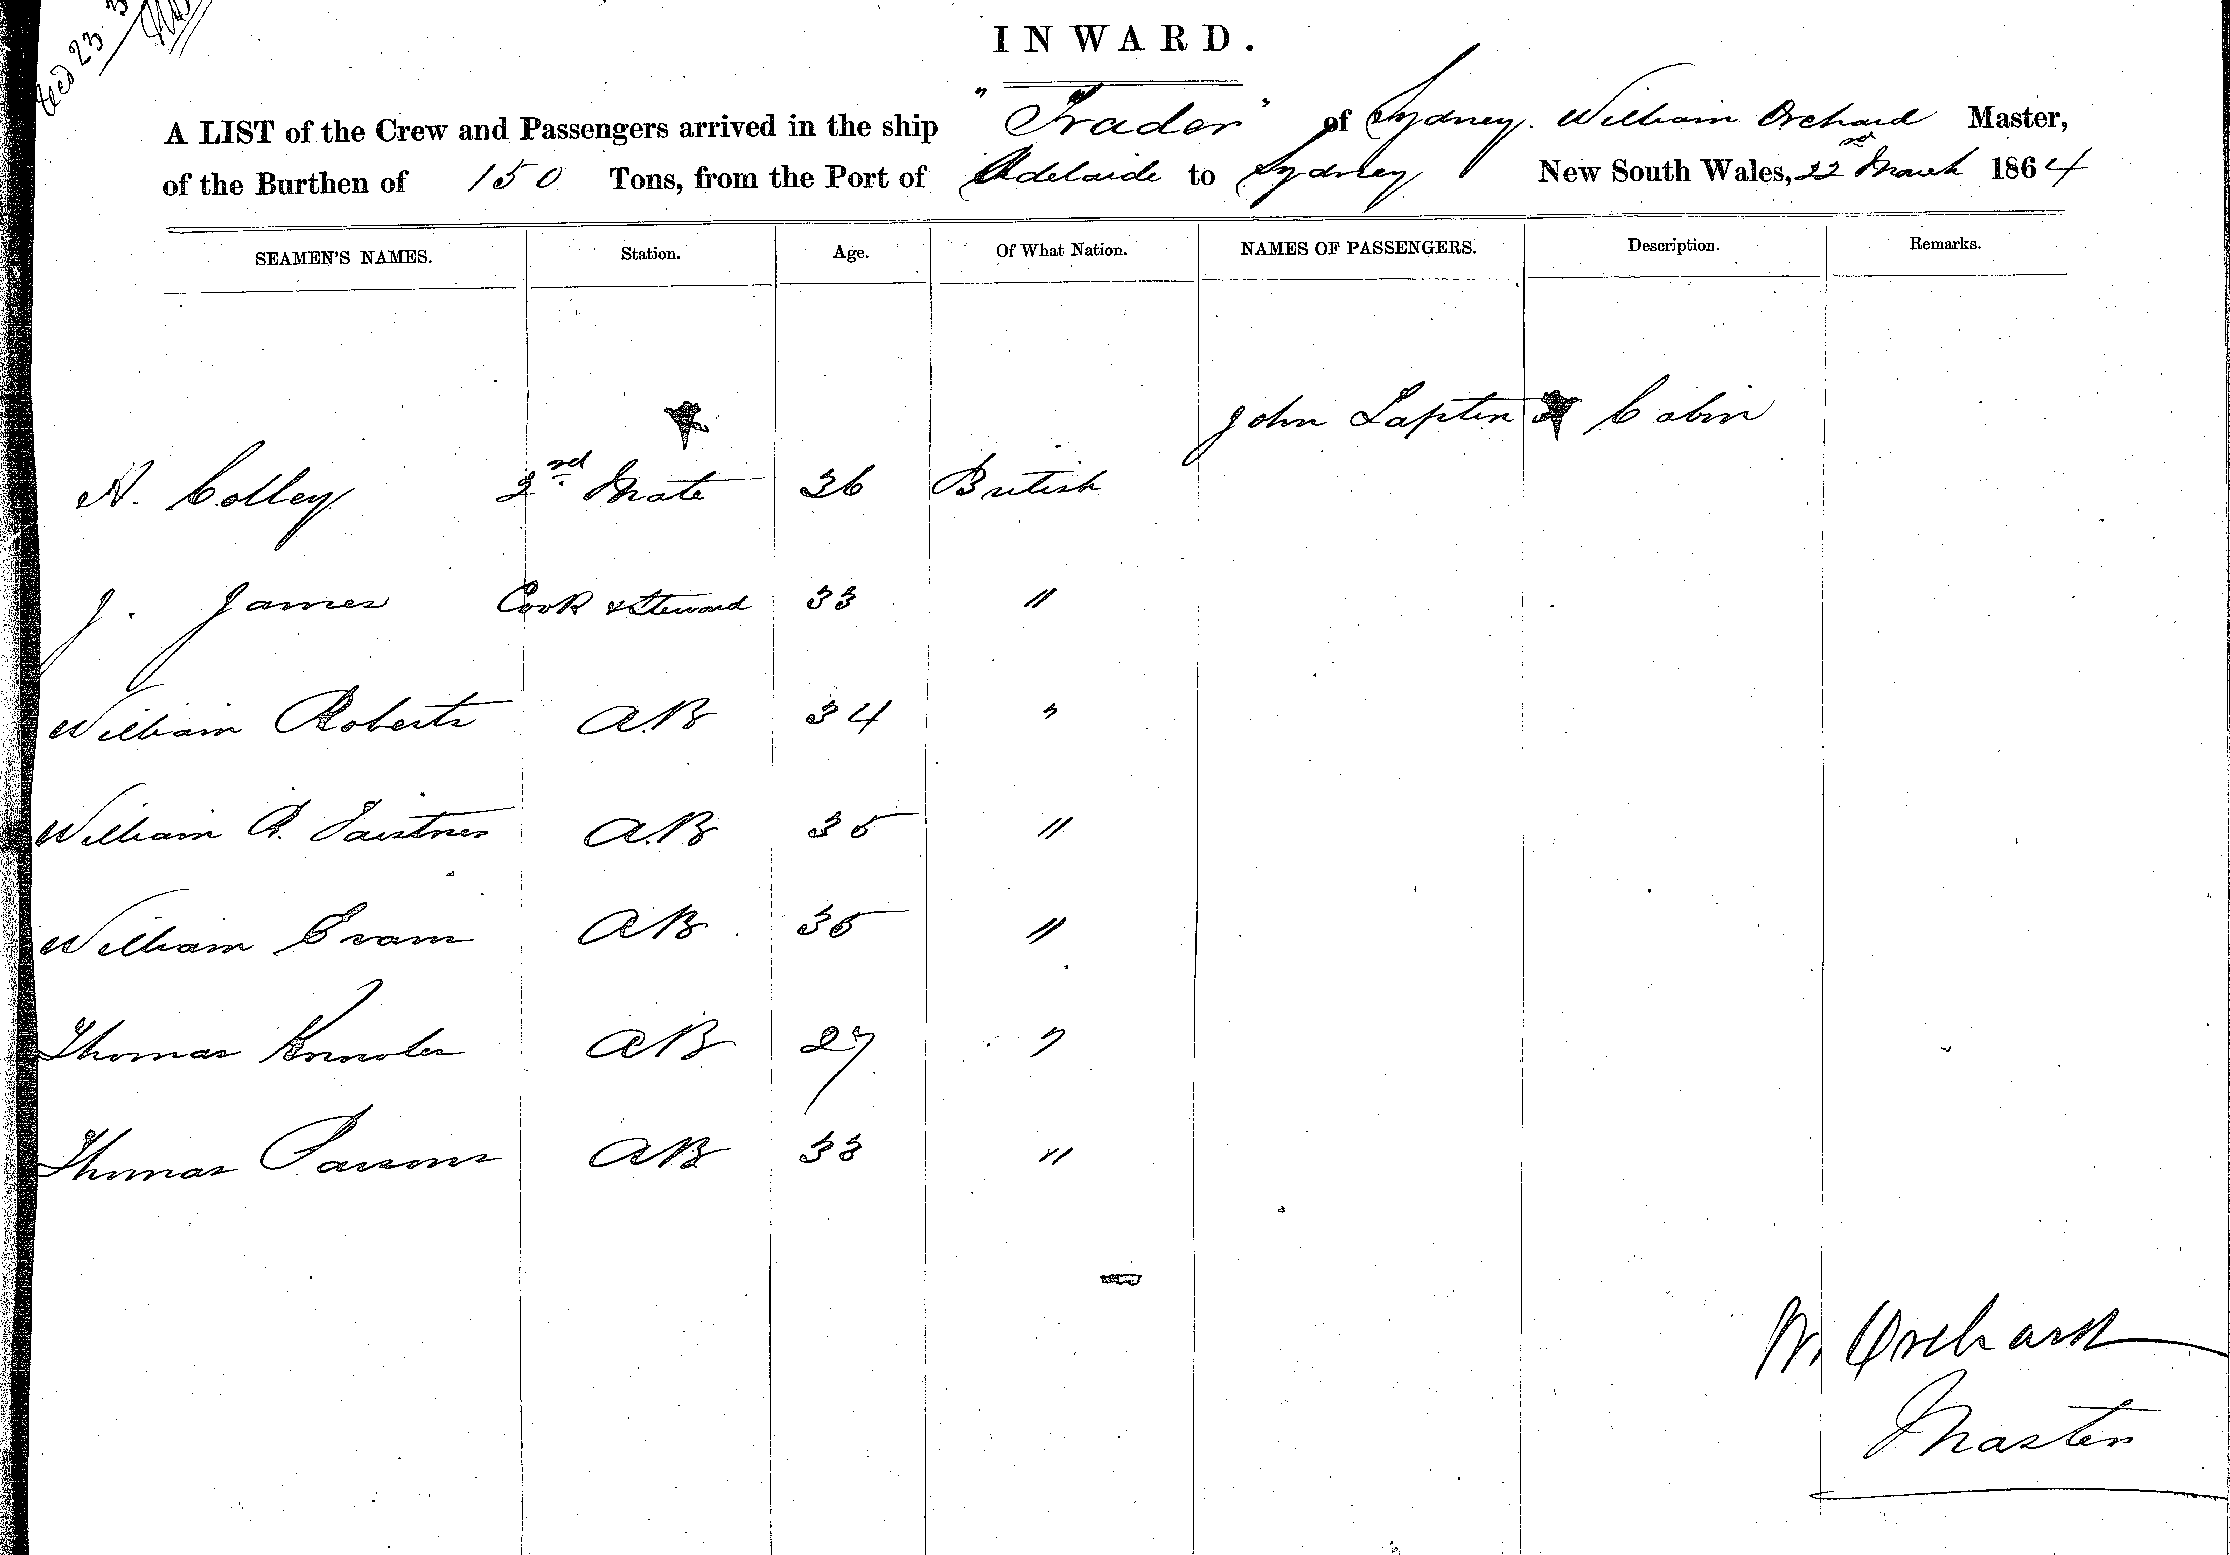 23
INWARD.
A LIST of the Crew and Passengers arrived in the ship "Trader" of Sydney. William Orchard Master,
of the Burthen of 150 Tons, from the Port of Adelaide to Sydney New South Wales, 22nd March 1864
SEAMEN'S NAMES. Station. Age. Of What Nation. NAMES OF PASSENGERS. Description. Remarks.
John Cabin
A. Colley 2nd Mate 36 British
J. James Cook & Steward 33 "
William Roberts A.B 34 "
William A.B 35 "
William Evans AB 35 "
Thomas AB 27 "
Thomas Parsons AB 33 "
W. Orchard
Master